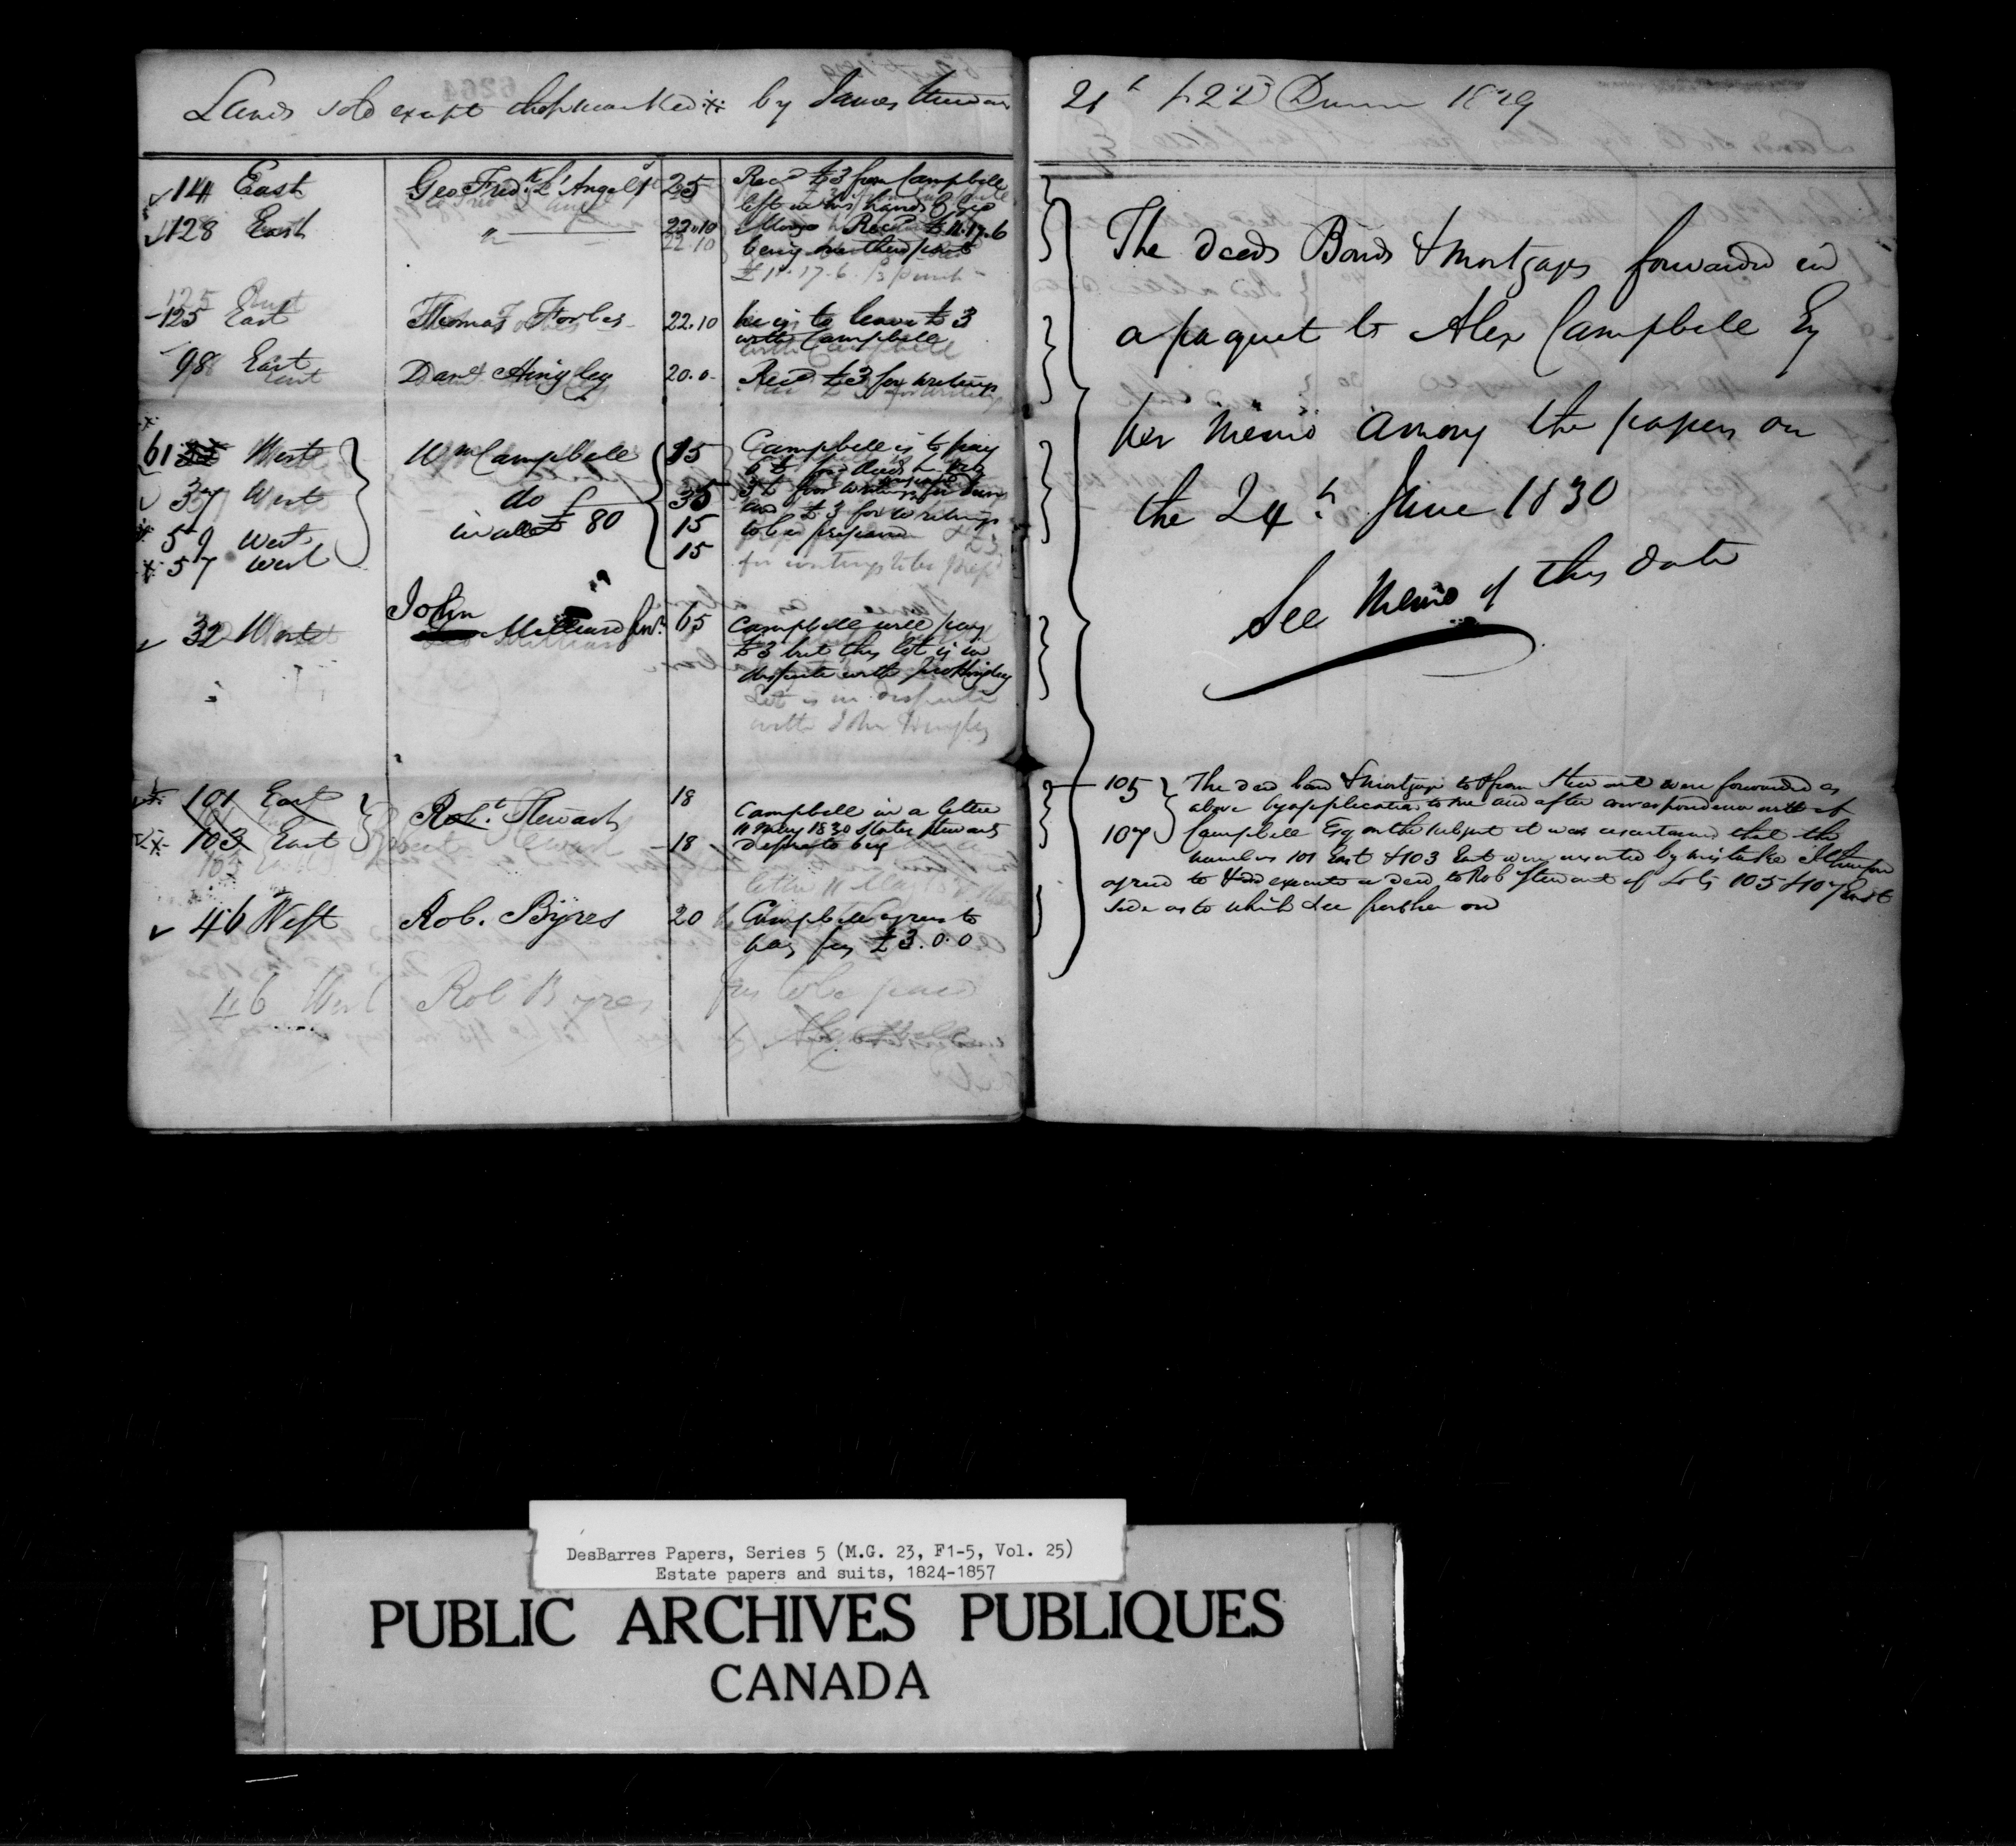 Lands sold except those marked ※ by James Stewart
14 East Geo Fredk L'Angel 25 Recd £3 from Campbell
left in his hands by Geo
128 East " 22.10 Recd £11.17.6
being
£11.17.6
125 East
125 East Thomas Forbes 22.10 he is to leave £3
with Campbell
with Campbell
98 East Danl Hingley 20.0 Recd £3 for writings
61 West Wm Campbell 15 Campbell is to pay
37 West do 35
in all £80 and £3 for writings
59 West 15 to be prepared
57 West 15 for writings to be prepd
32 West John Millward Junr 65 Campbell will pay
£3 but this lot is in
dispute with Jno Hingley
Lot is in dispute
with John Hingley
101 East Robt. Stewart 18 Campbell in a letter
11 May 1830 states Stewarts
103 East 18 desire to buy
46 West Rob. Byres 20 Campbell agrees to
pay fees £3.0.0
46 West Rob Byres fees to be paid
21st & 22d 1829
The deeds Bonds & Mortgages forwarded in
a paquet to Alex Campbell Esq
per Memo among the papers on
the 24th June 1830
See Memo of this date
105 The deed bond & Mortgage to & from Stewart were forwarded as
above by application to me and after correspondence with
107 Campbell Esq on the subject it was ascertained that the
numbers 101 East & 103 East were inserted by mistake I therefore
agreed to execute a deed to Rob Stewart of Lots 105 & 107 East
side as to which see further on
DesBarres Papers, Series 5 (M.G. 23, F1-5, Vol. 25)
Estate papers and suits, 1824-1857
PUBLIC ARCHIVES PUBLIQUES
CANADA